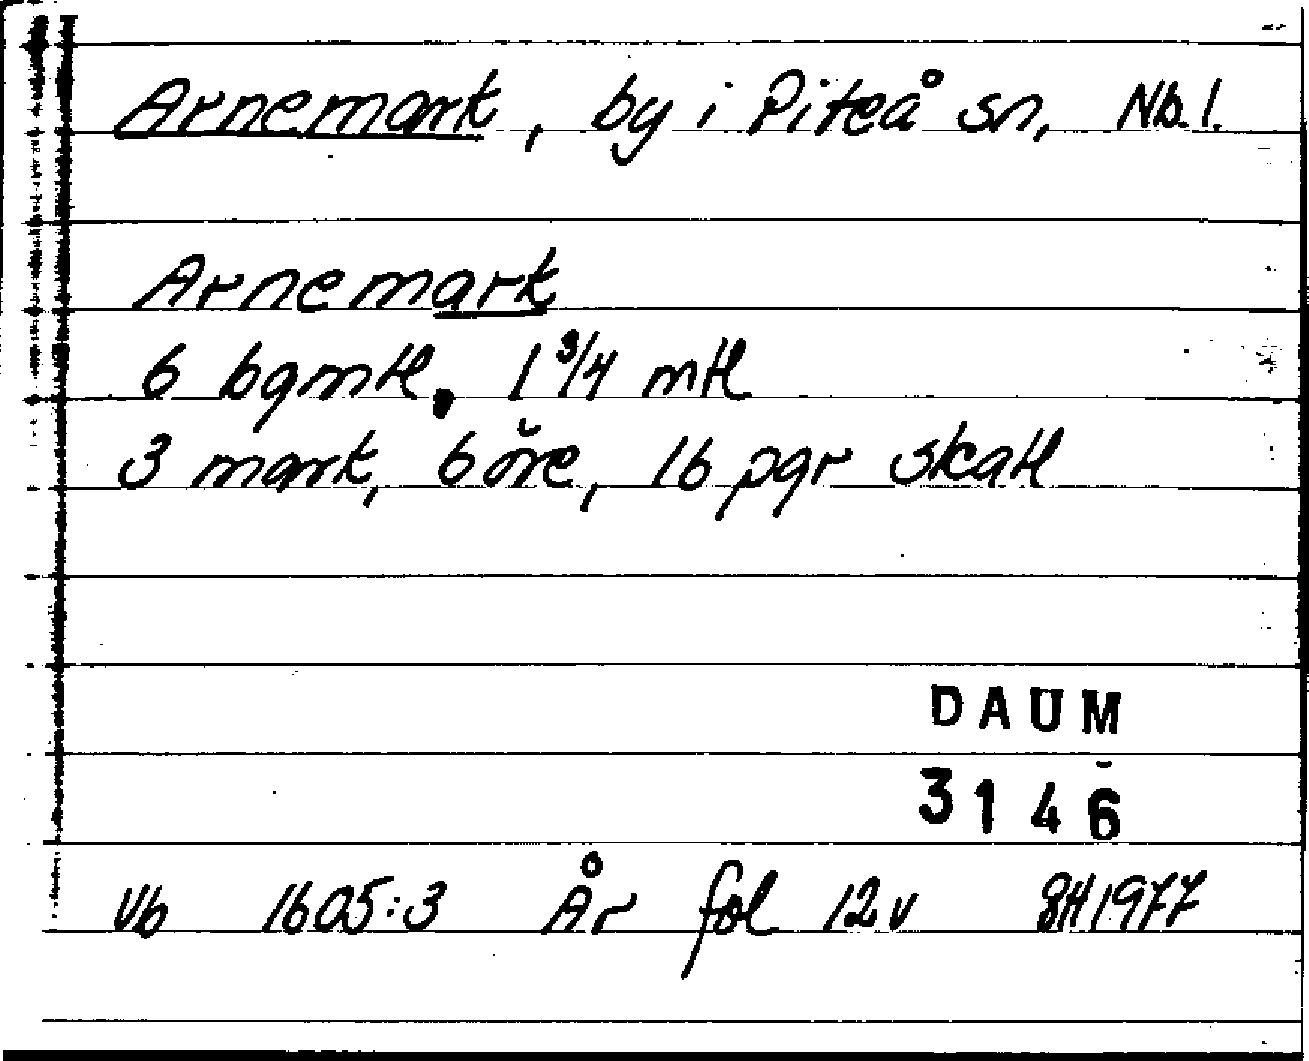 Arnemark, by i Piteå sn, Nb. l.
Arnemark
6 bgmtl, 1 3/4 mtl
3 mark, 6 öre, 16 pgr skatt
DAUM
3146
Vb 1605:3 År fol 12v GH 1977